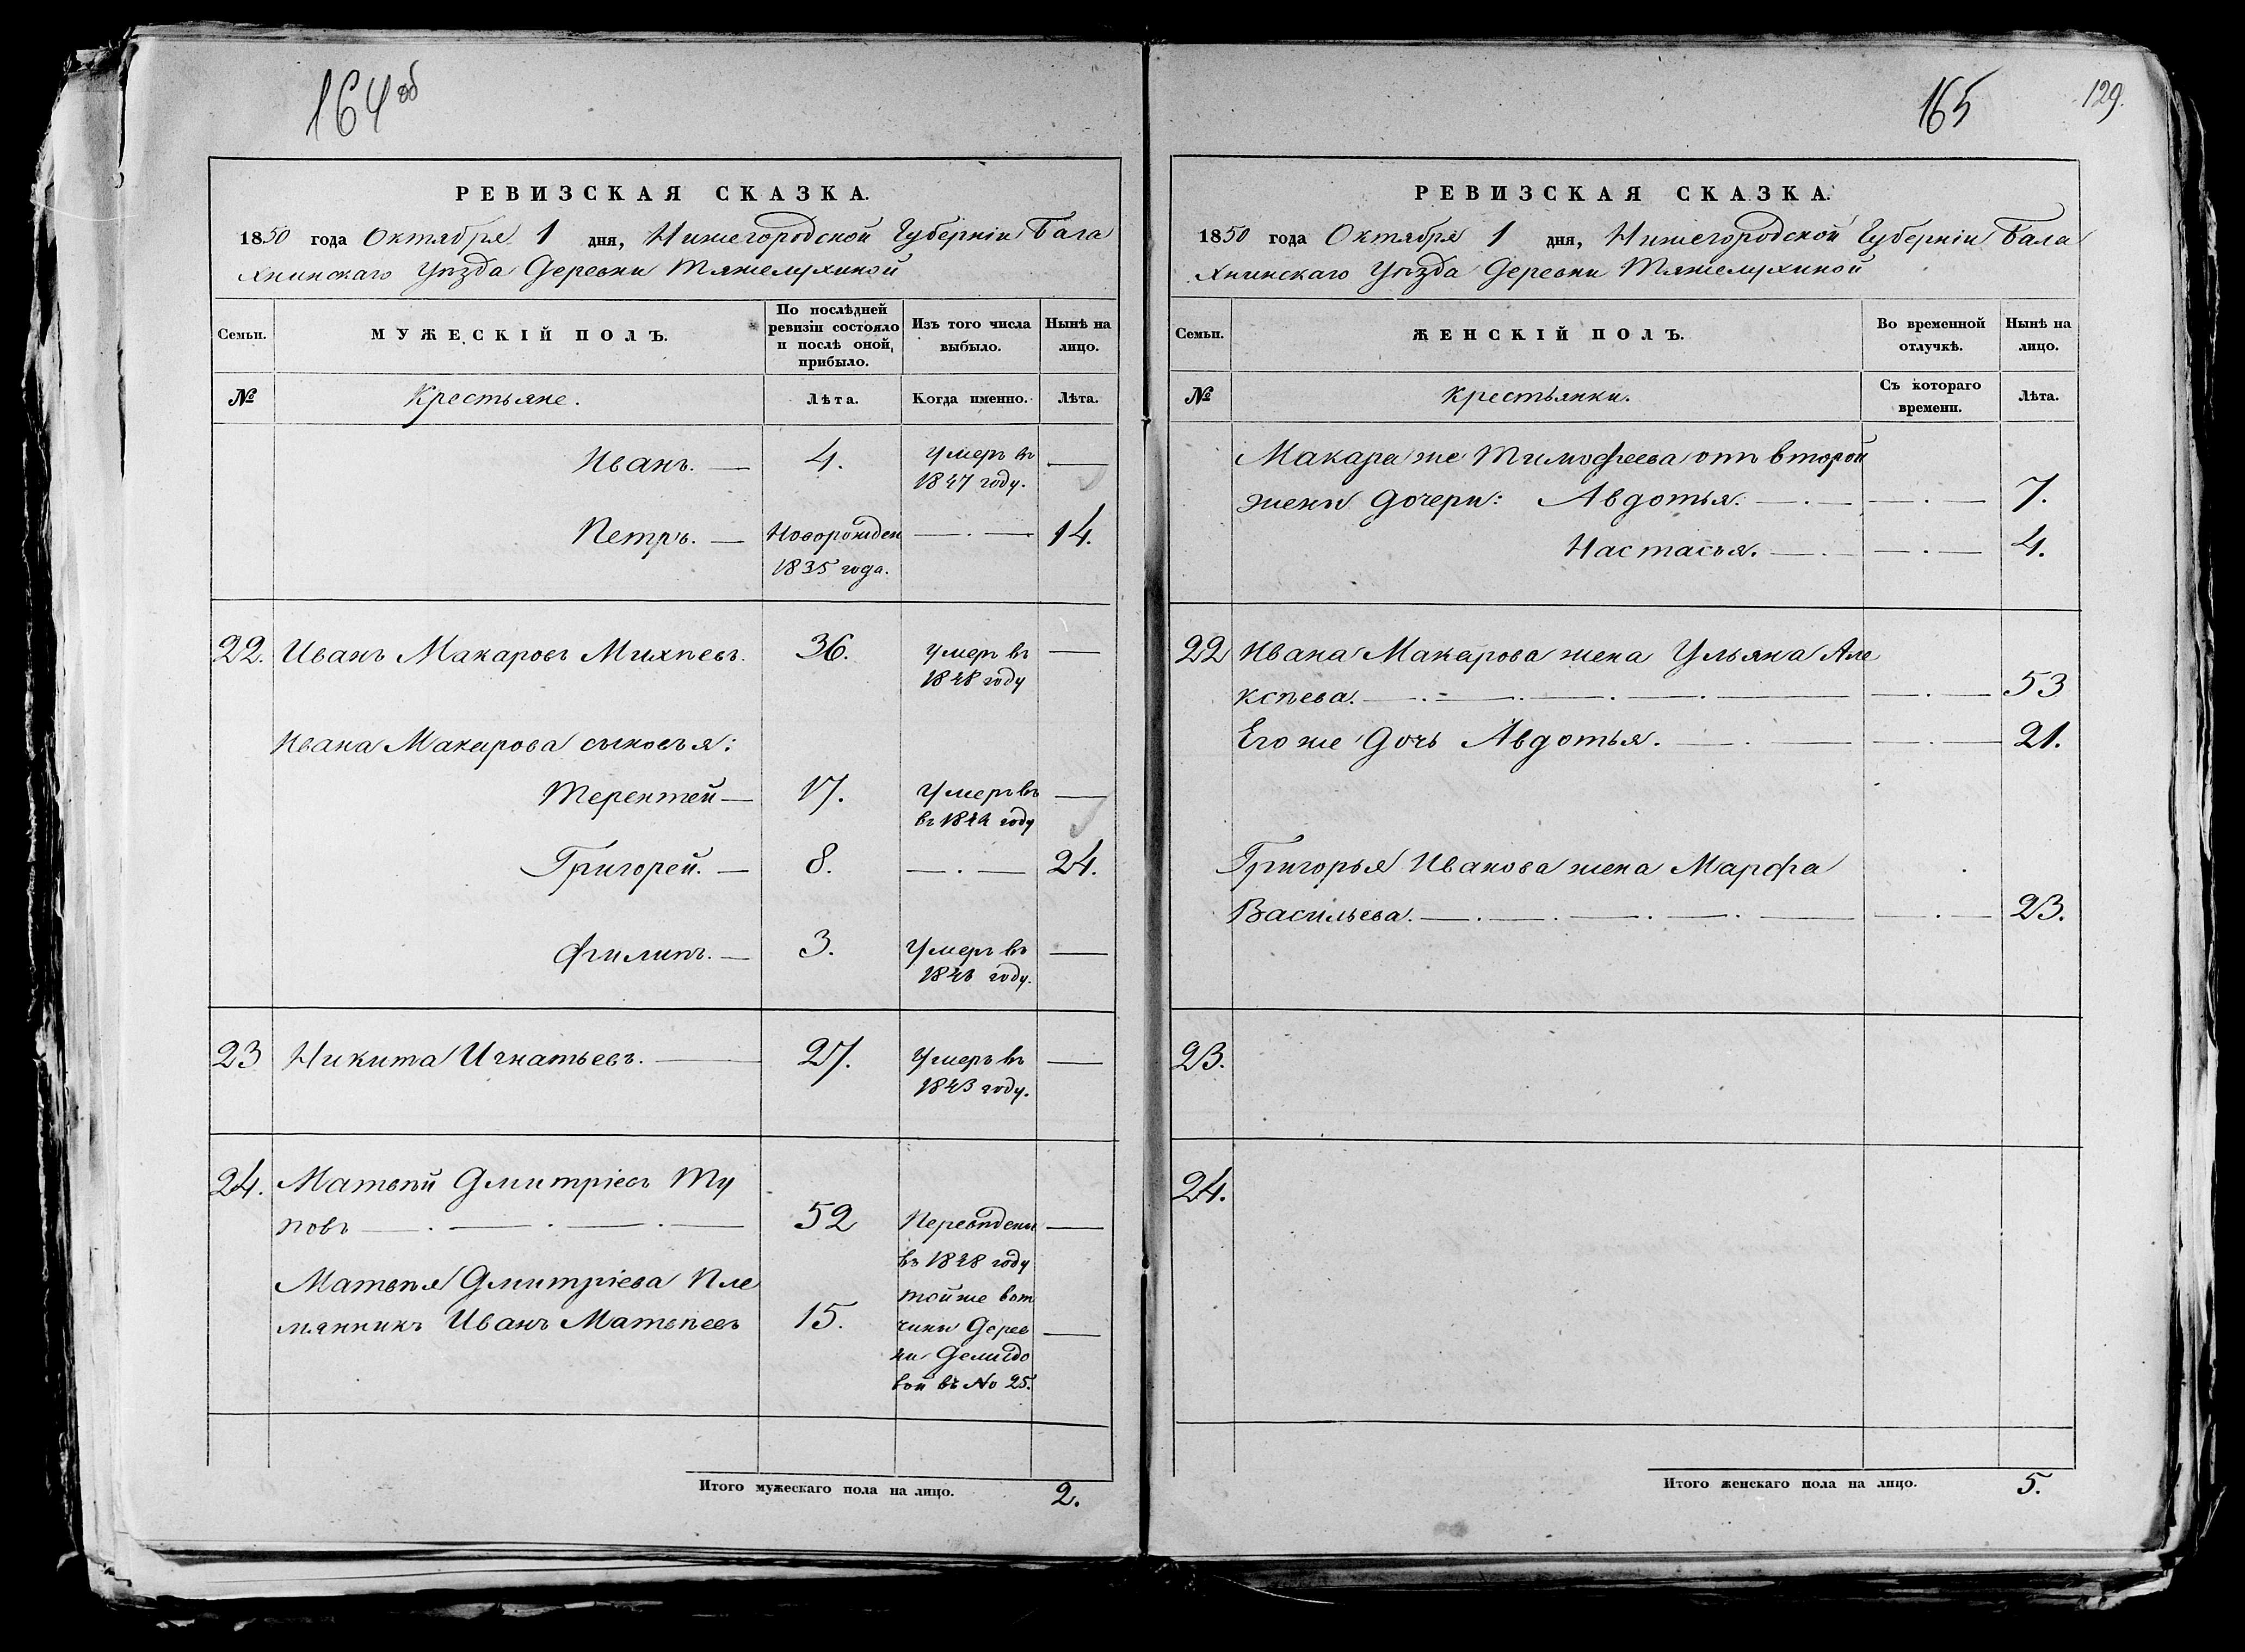 164 об
РЕВИЗСКАЯ СКАЗКА.
1850 года Октября 1 дня, Нижегородской Губерніи Бала
хнинскаго Уѣзда Деревни Тяжелухиной
Семьи.
МУЖЕСКІЙ ПОЛЪ.
По послѣдней
ревизіи состояло
и послѣ оной,
прибыло.
Изъ того числа
выбыло.
Нынѣ на
лицо.
№
Крестьяне.
Лѣта.
Когда именно.
Лѣта.
Иванъ. — 4. Умеръ въ —
1847 году.
Петръ. — Новорожден — . — 14.
1835 года.
22. Иванъ Макаровъ Михѣевъ. 36. Умеръ въ —
1848 году
Ивана Макарова сыновья:
Терентей — 17. Умеръ въ —
въ 1844 году
Григорей. — 8. — . — 24.
Филипъ. — 3. Умеръ въ —
году.
23 Никита Игнатьевъ. — 27. Умеръ въ —
1843 году.
24. Матвѣй Дмитріевъ Ту
повъ — . — . — . — 52 Переведены —
въ 1848 году
Матвѣя Дмитріева Пле
той же вот
мянникъ Иванъ Матвѣевъ 15. чины Дерев —
ни Демидо
вой въ No 25.
Итого мужескаго пола на лицо. 2.
165
129.
РЕВИЗСКАЯ СКАЗКА.
1850 года Октября 1 дня, Нижегородской Губерніи Бала
хнинскаго Уѣзда Деревни Тяжелухиной
Семьи.
ЖЕНСКІЙ ПОЛЪ.
Во временной
отлучкѣ.
Нынѣ на
лицо.
№
Крестьянки.
Съ котораго
времени.
Лѣта.
Макара же Тимофеева отъ второй
жены дочери: Авдотья. — . — — . — 7.
Настасья. — . — — . — 4.
22 Ивана Макарова жена Ульяна Але
ксѣева. — . — . — . — . — — . — 53
Его же дочь Авдотья. — . — — . — 21.
Григорья Иванова жена Марфа
Васильева. — . — . — . — . — — . — 23.
23.
24.
Итого женскаго пола на лицо. 5.